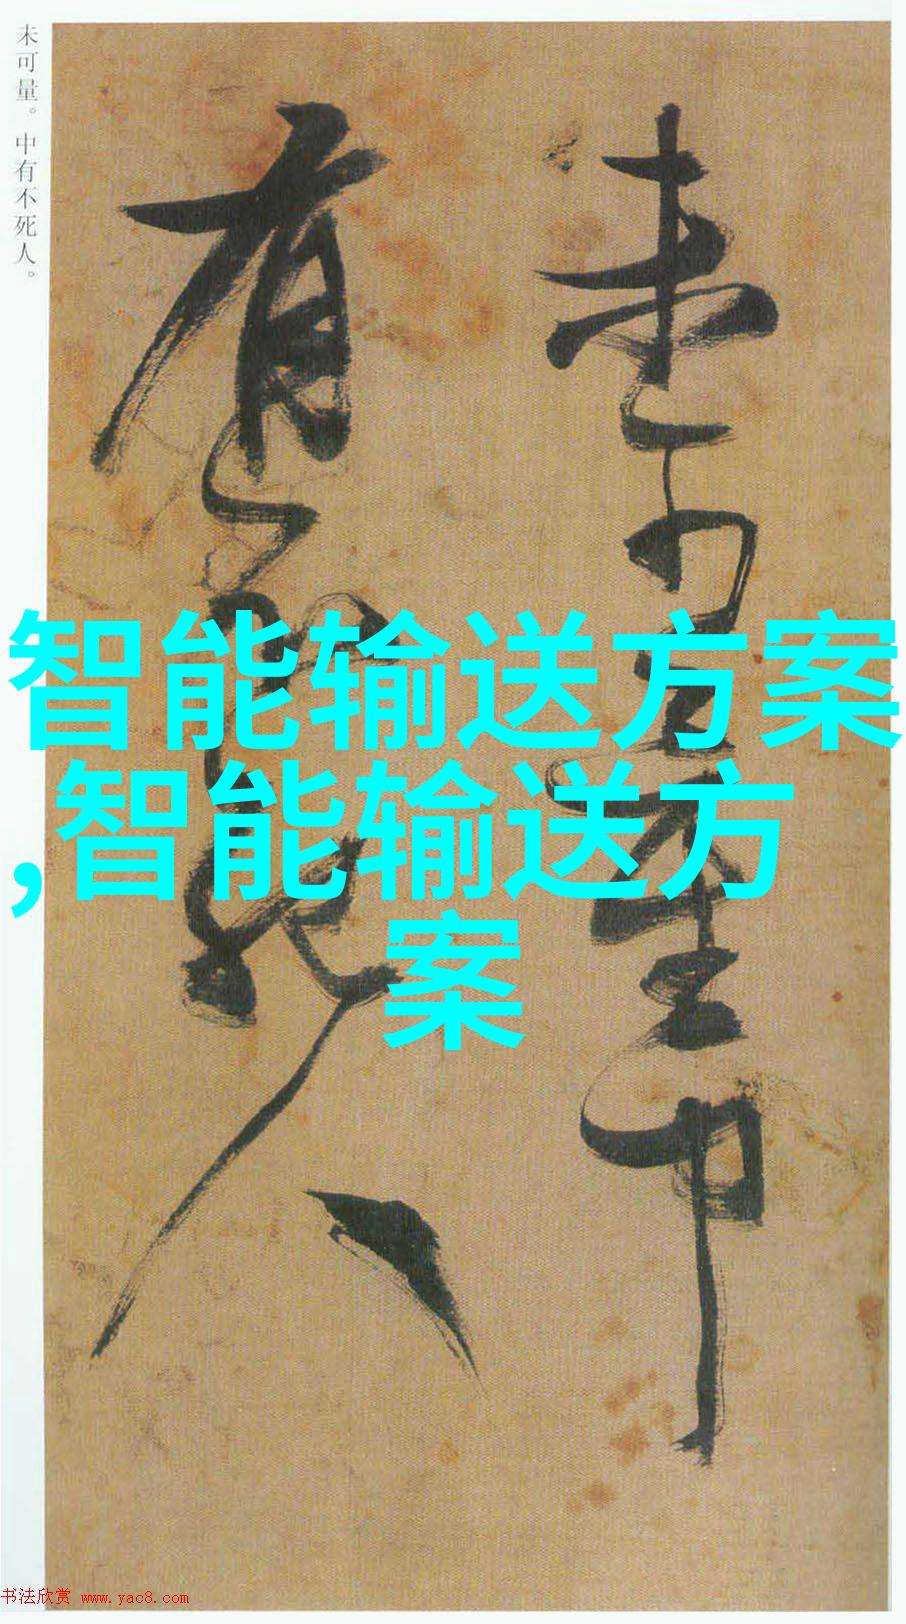 未可量。中有不死人。
未可量中
有不死人
智能输送方案
,智能输送方
案
书法欣赏 www.yac8.com